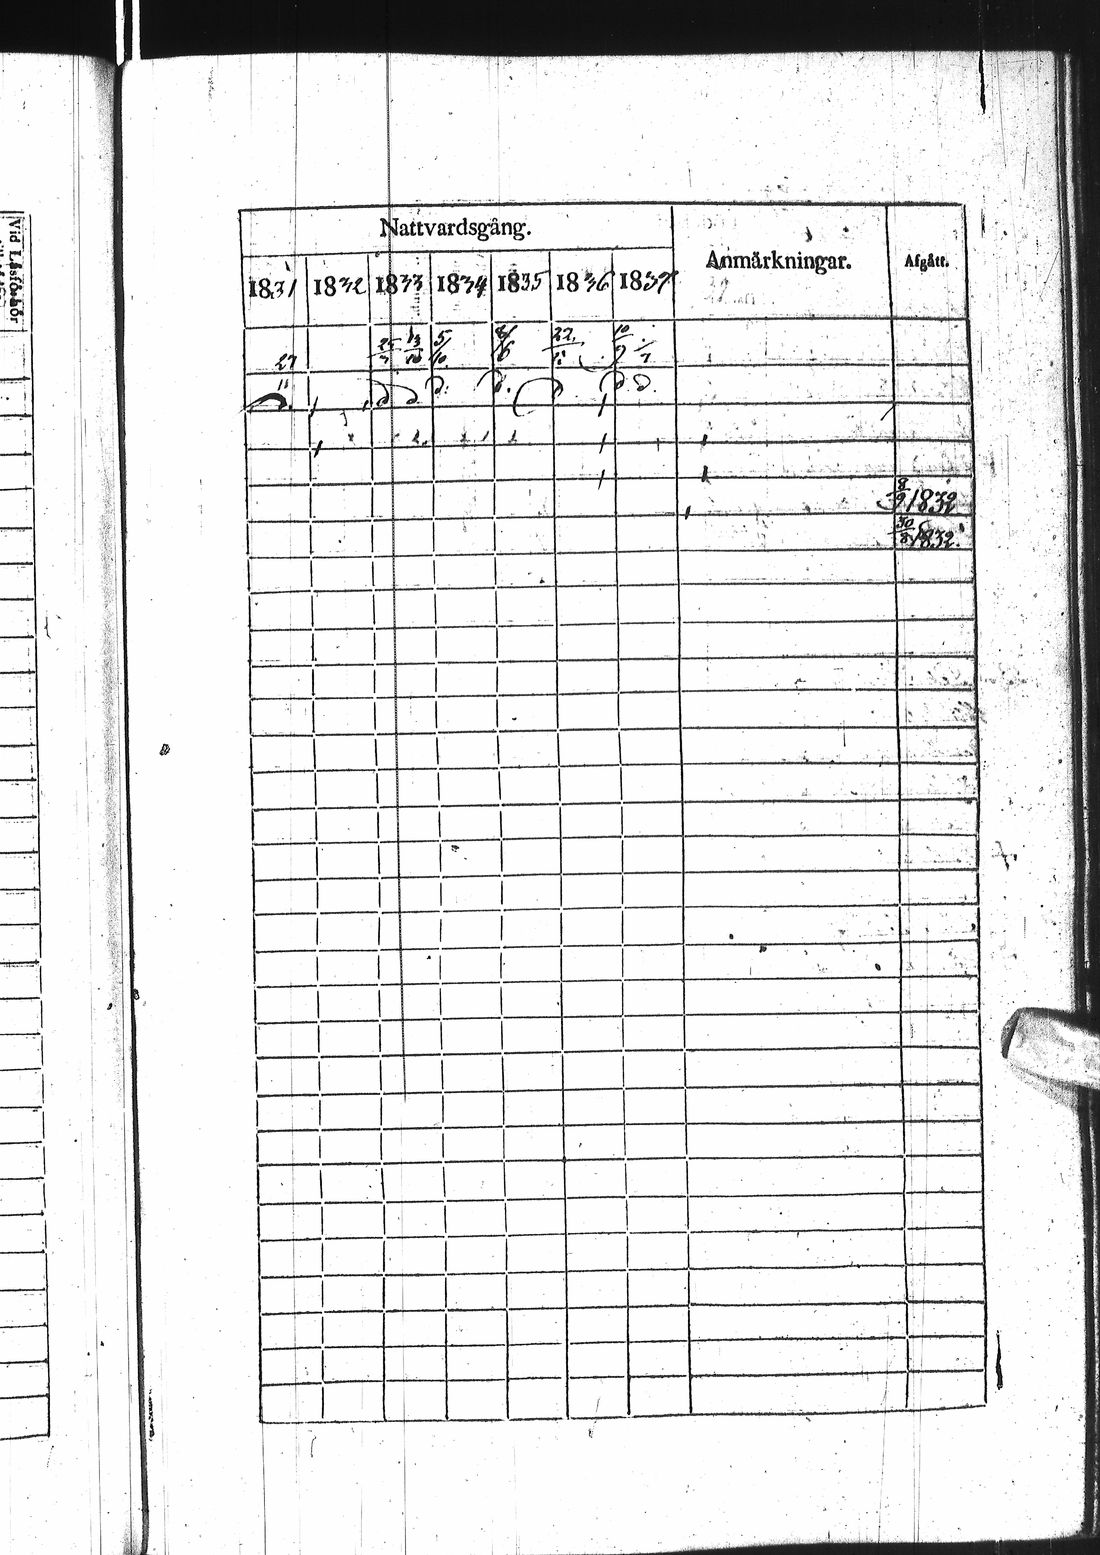 Vid Läsförhör
Nattvardsgång.
Anmärkningar.
Afgått.
1831 1832 1833 1834 1835 1836 1837
27 25/ 13/10 5/10 8/6 22/ 10/9 /7
d. d. d. d: d. d d. d.
8/9 1832
30/8 1832.